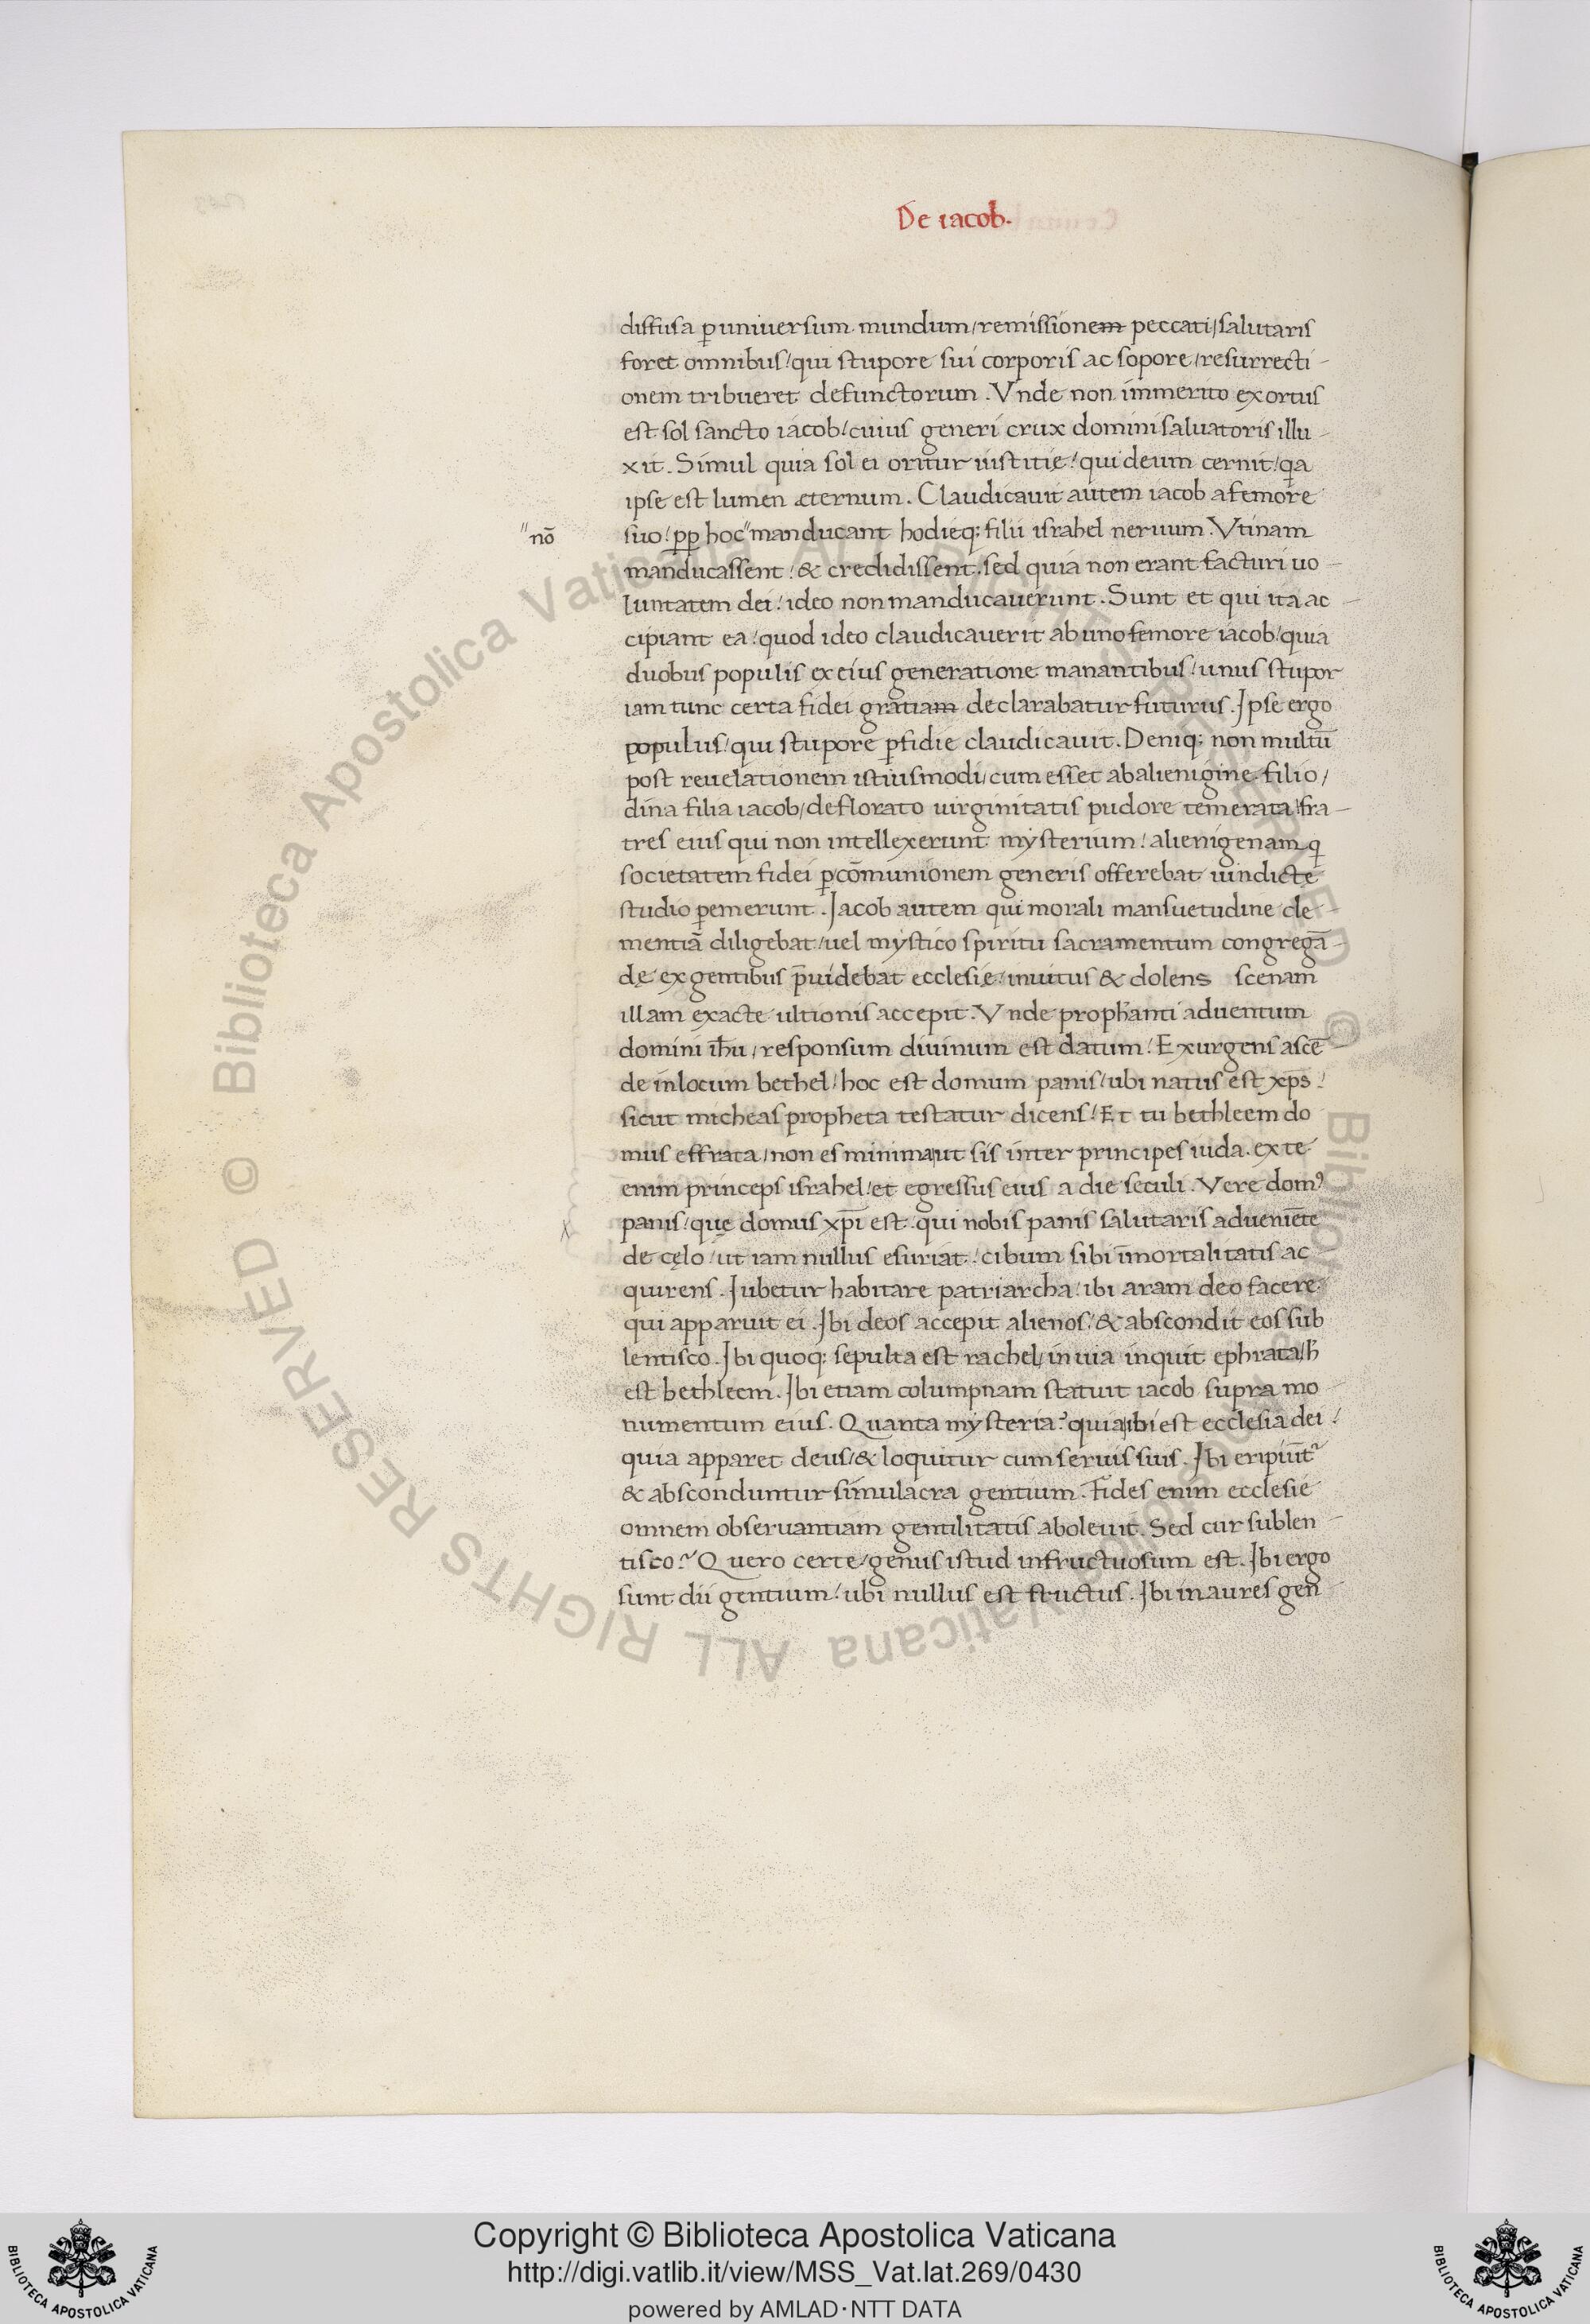 De iacob.
diffusa ꝑ uniuersum mundum/remissionem peccati/salutaris
foret omnibus/qui stupore sui corporis ac sopore/resurrecti-
onem tribueret defunctorum. Vnde non immerito exortus
est sol sancto iacob/cuius generi crux domini saluatoris illu-
xit. Simul quia sol ei oritur iustitię/qui deum cernit/qa
ipse est lumen æternum. Claudicauit autem iacob a femore
"nō
suo/ꝑꝑ hoc"manducant hodieq; filii israhel neruum. Vtinam
manducassent/& credidissent. sed quia non erant facturi uo-
luntatem dei/ideo non manducauerunt. Sunt et qui ita ac-
cipiant ea/quod ideo claudicauerit ab uno femore iacob/quia
duobus populis ex eius generatione manantibus/unus stupor
iam tunc certa fidei gratiam declarabatur futurus. Ipse ergo
populus/qui stupore ꝑfidie claudicauit. Deniq; non multū
post reuelationem istiusmodi/cum esset ab alienigine filio/
dina filia iacob/deflorato uirginitatis pudore temerata/fra-
tres eius qui non intellexerunt mysterium/alienigenam q
societatem fidei ꝑ cōmunionem generis offerebat uindictę
studio ꝑemerunt. Iacob autem qui morali mansuetudine cle-
mentiā diligebat/uel mystico spiritu sacramentum congregā-
dę ex gentibus p̄uidebat ecclesię/inuitus & dolens scenam
illam exacte ultionis accepit. Vnde prophanti aduentum
domini ih̄u/responsum diuinum est datum/Exurgens ascē-
de in locum bethel/hoc est domum panis/ubi natus est xp̄s/
sicut micheas propheta testatur dicens/Et tu bethleem do
mus effrata/non es minima/ut sis inter principes iuda. ex te
enim princeps israhel/et egressus eius a die seculi. Vere domꝰ
panis/quę domus xp̄i est. qui nobis panis salutaris adueniēte
de cęlo/ut iam nullus esuriat/cibum sibi īmortalitatis ac-
quirens. Iubetur habitare patriarcha/ibi aram deo facere
qui apparuit ei. Ibi deos accepit alienos/& abscondit eos sub
lentisco. Ibi quoq; sepulta est rachel/in uia inquit ephrata/h̄
est bethleem. Ibi etiam columpnam statuit iacob supra mo-
numentum eius. Quanta mysteria? quia ibi est ecclesia dei/
quia apparet deus/& loquitur cum seruis suis. Ibi eripiūt᷑
& absconduntur simulacra gentium. Fides enim ecclesie
omnem obseruantiam gentilitatis aboleuit. Sed cur sub len-
tisco? Quero certe/genus istud infructuosum est. Ibi ergo
sunt dii gentium/ubi nullus est fructus. Ibi in aures gen-
Copyright © Biblioteca Apostolica Vaticana
http://digi.vatlib.it/view/MSS_Vat.lat.269/0430
powered by AMLAD·NTT DATA
BIBLIOTECA APOSTOLICA VATICANA
BIBLIOTECA APOSTOLICA VATICANA
© Biblioteca Apostolica Vaticana ALL RIGHTS RESERVED © Biblioteca Apostolica Vaticana ALL RIGHTS RESERVED